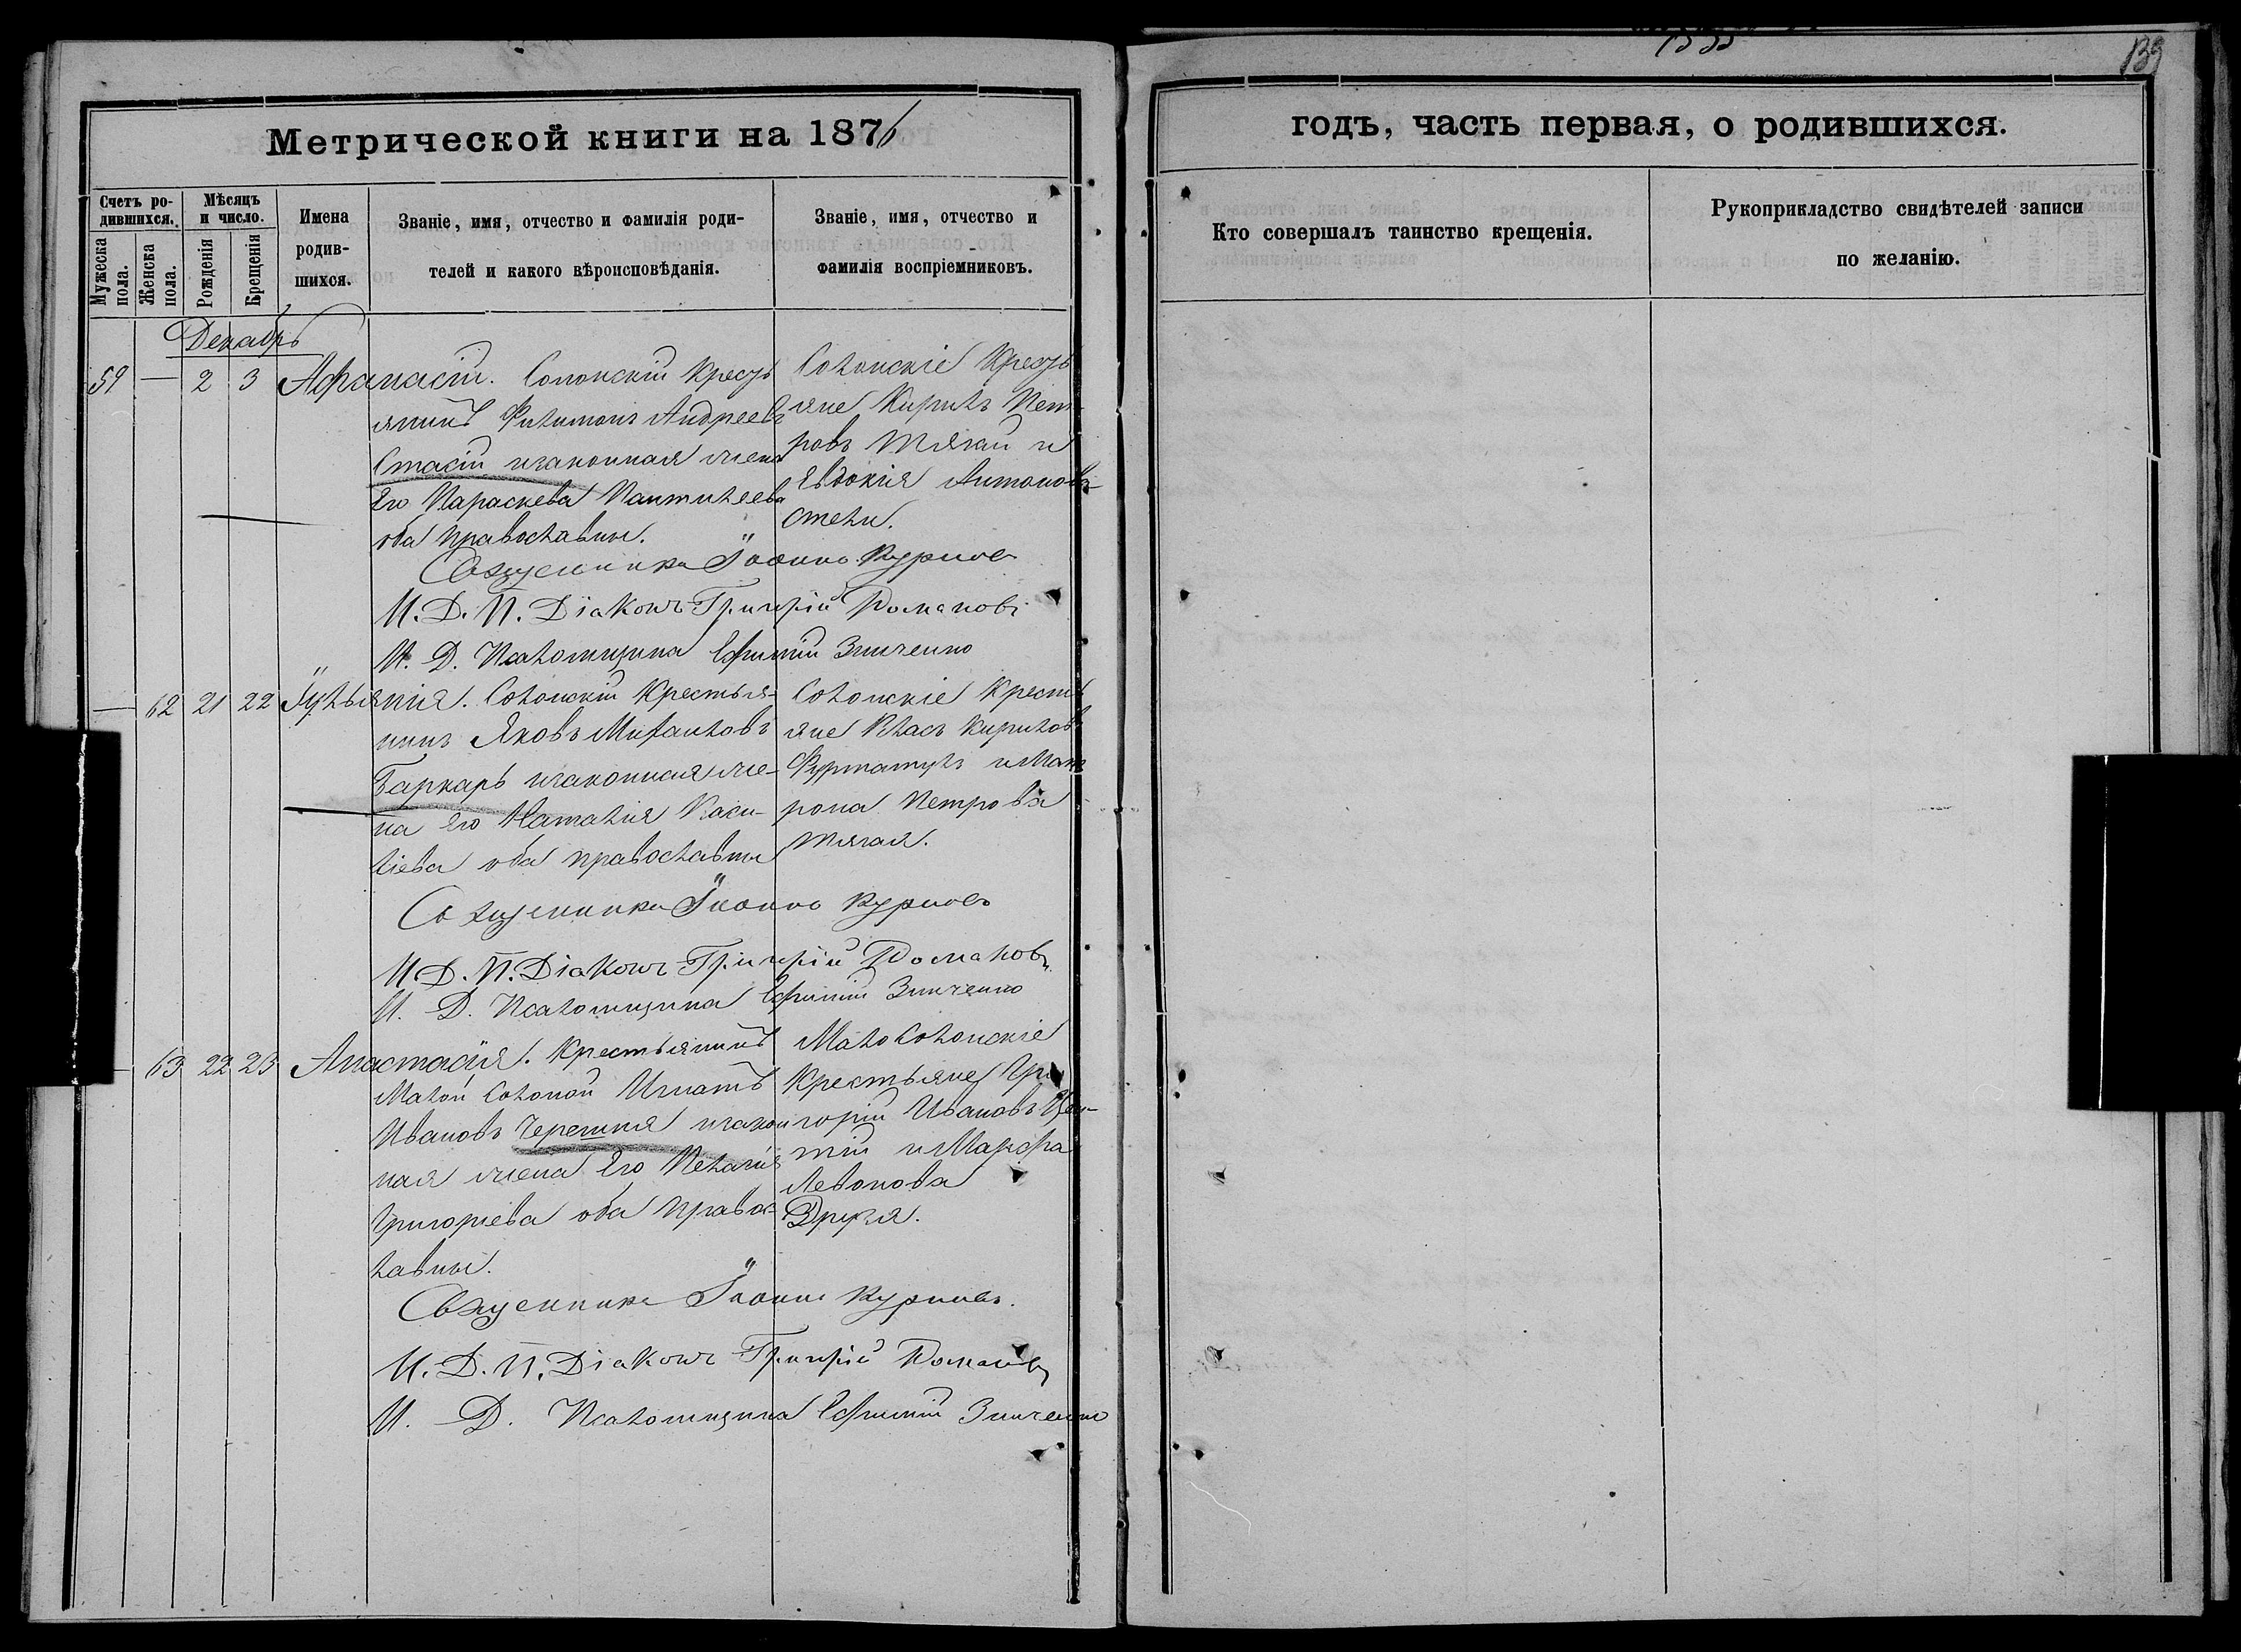 139
Метрической книги на 1876
годъ, часть первая, о родившихся.
Счетъ ро-
дившихся.
Мужеска
пола.
Женска
пола.
Мѣсяцъ
и число.
Рожденія
Крещенія
Имена
родив-
шихся.
Званіе, имя, отчество и фамилія роди-
телей и какого вѣроисповѣданія.
Званіе, имя, отчество и
фамилія воспріемниковъ.
Кто совершалъ таинство крещенія.
Рукоприкладство свидѣтелей записи
по желанію.
Декабрь
59 — 2 3 Афанасій. Солонскій Кресть
янинъ Филимонъ Андреевъ
Стасій изаконная жена
Его Параскева Пантилеева
оба православны.
Солонскіе Кресть
яне Кирилъ Пет-
ровъ Тягай и
Явдокія Антонова
Стели.
Священникъ Іоаннъ Курновъ
И. Д. П. Діаконъ Григорій Романовъ
И. Д. Псаломщика Ефимій Зинченко
— 62 21 22 Іулыянія. Солонскій Крестья-
нинъ Яковъ Михаиловъ
Гаркарь изаконная же-
на Его Наталія Васи-
ліева оба православны
Солонскіе Кресть
яне Власъ Кириловъ
Фурматулъ и Мат
рона Петрова
Тягая.
Священникъ Іоаннъ Курновъ
И. Д. П. Діаконъ Григорій Романовъ
И. Д. Псаломщика Ефимій Зинченко
— 63 22 23 Анастасія. Крестьянинъ
Малой Солоной Игнатъ
Ивановъ Черешня изакон
ная жена Его Пелагія
Григорьева оба правос-
лавны.
Мало Солонскіе
Крестьяне Гри
горій Ивановъ
тій и Марфа
Левонова
Друзя.
Священникъ Іоаннъ Курновъ.
И. Д. П. Діаконъ Григорій Романовъ
И. Д. Псаломщика Ефимій Зинченко